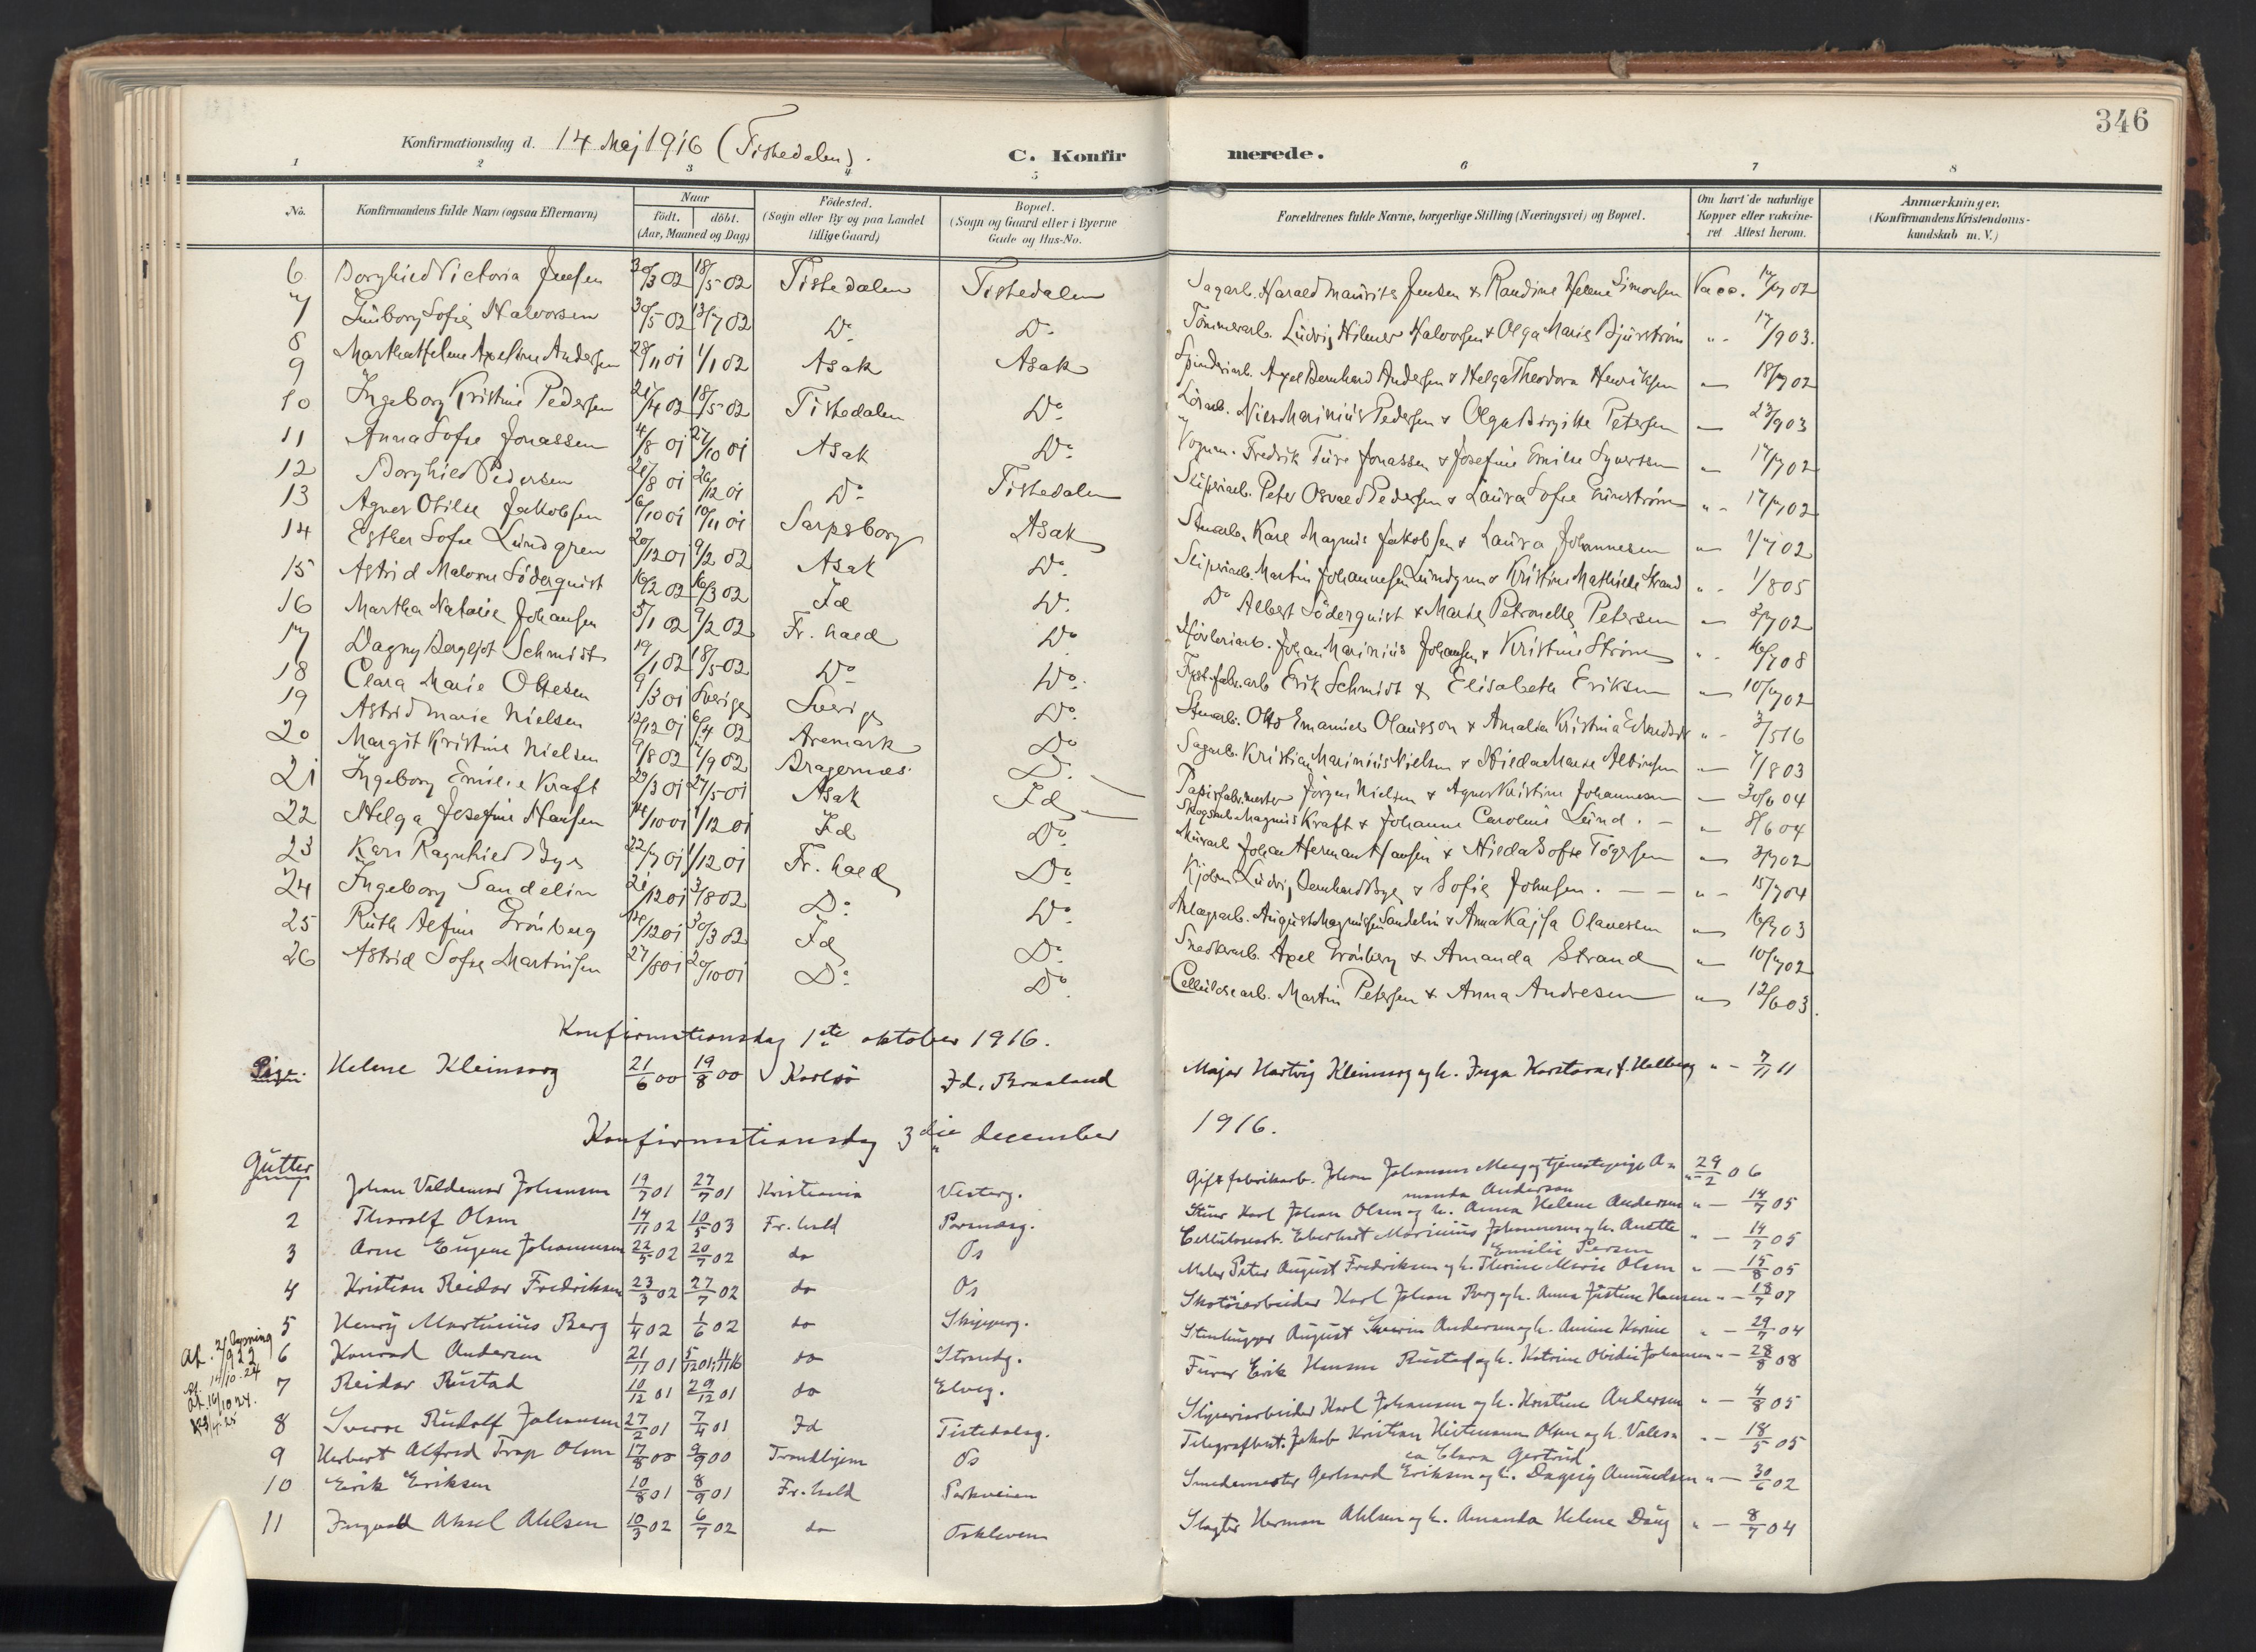 346
Konfirmationsdag d. 14 Maj 1916 (Tistedalen).
C. Konfirmerede.
1 2 3 4 5 6 7 8
No. Konfirmandens fulde Navn (ogsaa Efternavn) Naar født. døbt. (Aar, Maaned og Dag) Fødested. (Sogn eller By og paa Landet tillige Gaard) Bopæl. (Sogn og Gaard eller i Byerne Gade og Hus-No. Forældrenes fulde Navne, borgerlige Stilling (Næringsvei) og Bopæl. Om havt de naturlige Kopper eller vakcineret Attest herom. Anmærkninger. (Konfirmandens Kristendomskundskab m. V.)
6 Borghild Victoria Jensen 30/3 02 18/5 02 Tistedalen Tistedalen Sagarb. Harald Mauritz Jensen & Randine Helene Simonsen Vacc. 17/7 02
7 Sofie Halvorsen 30/5 02 13/7 02 Do Do Tømmerarb. Ludvig Hilmer Halvorsen & Olga Marie Bjurstrøm " - 17/9 03.
8 Martha Helene Axeline Andersen 28/11 01 1/1 02 Asak Asak Spinderiarb. Axel Bernhard Andersen & Helga Theodora Henriksen " 18/7 02
9 Ingeborg Kristine Pedersen 21/4 02 18/5 02 Tistedalen Do Nils Marinius Pedersen & Olga Birgitte Petersen " 23/9 03
10 Anna Sofie Jonassen 4/8 01 27/10 01 Asak Do Vognm. Fredrik Ture Jonassen & Josefine Emilie Syversen " 17/7 02
11 Borghild Pedersen 21/8 01 26/12 01 Do Tistedalen Sliperiarb. Peter Osvald Pedersen & Laura Sofie " - 17/7 02
12 Agnes Otilie Jakobsen 6/10 01 10/11 01 Sarpsborg Asak Stuearb. Karl Magnus Jakobsen & Laura Johannesen " 1/7 02
13 Esther Sofie Lundgren 20/12 01 9/2 02 Asak Do Sliperiarb. Martin Johannesen Lundgren & Kristine Mathilde Strand " - 1/8 05
14 Astrid Malvine Söderquist 16/2 02 16/3 02 Id Do Do Albert Söderquist & Marie Petronelle Petersen " 2/7 02
15 Martha Natalie Johansen 5/1 02 9/2 02 Fr. hald Do Høvleriarb. Johan Marinius Johansen & Kristine Strøm " - 16/7 08
16 Dagny Bergljot Schmidt 19/1 02 18/5 02 Do Do Erik Schmidt & Elisabeth Eriksen " 10/7 02
17 Clara Marie Ottesen 9/3 01 Sverige Sverige Do Stuarb. Otto Emanuel Olausson & Amalia Kristina " - 3/5 16
18 Astrid Marie Nielsen 12/12 01 6/4 02 Aremark Do Sagarb. Kristian Marinius Nielsen & Hilda Marie Albinsen - 7/8 03
19 Margit Kristine Nielsen 9/8 02 7/9 02 Bragernæs Do Papirfabr.mester Jørgen Nielsen & Agnes Kristine Johannesen - 30/6 04
20 Ingeborg Emilie Kraft 29/3 01 27/5 01 Asak Id Skogsarb. Magnus Kraft & Johanne Caroline Lund. - " 8/6 04
21 Helga Josefine Hansen 14/10 01 1/12 01 Id Do Murarb. Johan Herman Hansen & Hilda Sofie Tøgersen " 2/7 02
22 Kari Ragnhild Bye 22/7 01 1/12 01 Fr. hald Do Kjørem. Ludvig Bernhard Bye & Sofie Johnsen. - - " - 15/7 04
23 Ingeborg Sandelin 21/12 01 3/8 02 Do Do Anlægsarb. August Magnussen Sandelin & Anna Kajsa Olavesen " 16/7 03
24 Ruth Alfine Grönberg 14/12 01 30/3 02 Id Do Snedkerarb. Axel Grönberg & Amanda Strand " 10/7 02
25 Astrid Sofie Martinsen 27/8 01 20/10 01 Do Do Cellulosearb. Martin Petersen & Anna Andresen " 12/6 03.
26
Konfirmationsdag 1ste oktober 1916.
Pige. Helene Kleinsorg 21/6 00 19/8 00 Karlsö Id, Braaland Major Hartvig Kleinsorg og h. Inga Karstava f. Hallberg " - 7/11 11
Konfirmationsdag 3die december 1916.
Gutter
1 Johan Valdemar Johansen 19/7 01 27/7 01 Kristiania Vesterg. Gift fabrikarb. Johan Johansen Meeg og tjenestepige Amanda Anderson " - 29/2 06
2 Tharalf Olsen 14/11 02 10/5 03 Fr. hald Stuer Karl Johan Olsen og h. Anna Helene Andersen " - 14/7 05
3 Arne Eugene Johannesen 22/5 02 20/7 02 do Os Cellulosearb. Eberhart Marinius Johannesen og h. Anette Emilie Persen " - 14/7 05
4 Kristian Reidar Fredriksen 23/3 02 27/7 02 do Os Maler Peter August Fredriksen og h. Thrine Marie Olsen " - 15/8 05
5 Henry Martinius Berg 1/4 02 1/6 02 do Skipperg. Skotöiarbeider Karl Johan Berg og h. Anna Justine Hansen " - 18/7 07
6 Konrad Andersen 21/11 01 5/12 01, 11/11 16 do Strandg. Stenhugger August Severin Andersen og h. Amine Karine " - 29/7 04
7 Reidar Rustad 10/12 01 29/12 01 do Elveg. Furer Erik Hansen Rustad og h. Katrine Obidie Johansen " - 28/8 08
8 Sverre Rudolf Johansen 27/2 01 7/4 01 Id Tistedalsg. Sliperiarbeider Karl Johansen og h. Kristine Andersen " - 4/8 05
9 Herbert Alfred Trap Olsen 17/8 00 9/9 00 Trondhjem Os Telegrafbest. Jakob Kristian Heitmann Olsen og h. Valesca Clara Gertrud " - 18/5 05
10 Erik Eriksen 10/8 01 8/9 01 Fr. hald Parkveien Smedemester Gerhard Eriksen og h. Dagny Amundsen " - 30/6 02
11 Ingvald Aksel Ahlsen 10/3 02 6/7 02 do Oskleven Slagter Herman Ahlsen og h. Amanda Helene Daug " - 8/7 04
At. 2/9 22 lysning
At. 14/10-24
At. 16/10 24.